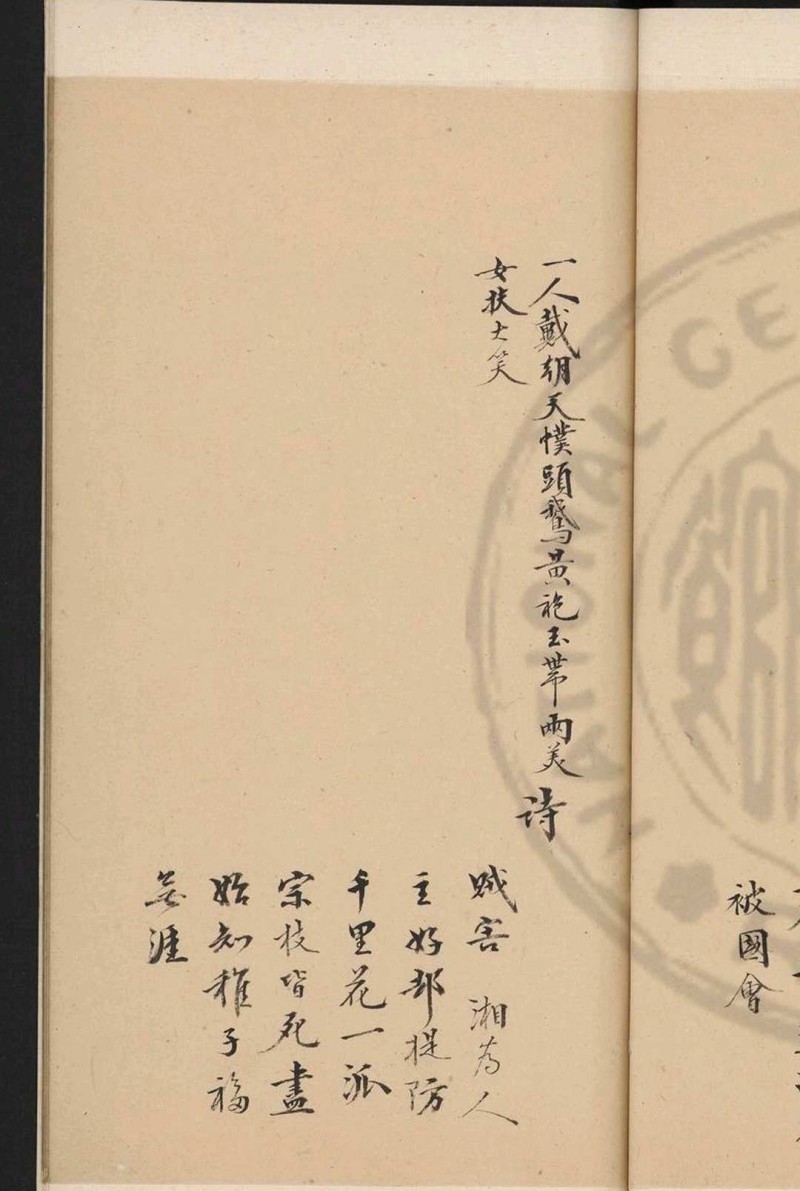 被國會
一人戴朝天幞頭鵞黄袍玉帶兩美
女扶士笑
詩
賊害 湘為人
主好却提防
千里花一派
宗枝皆死盡
始知稚子福
無涯